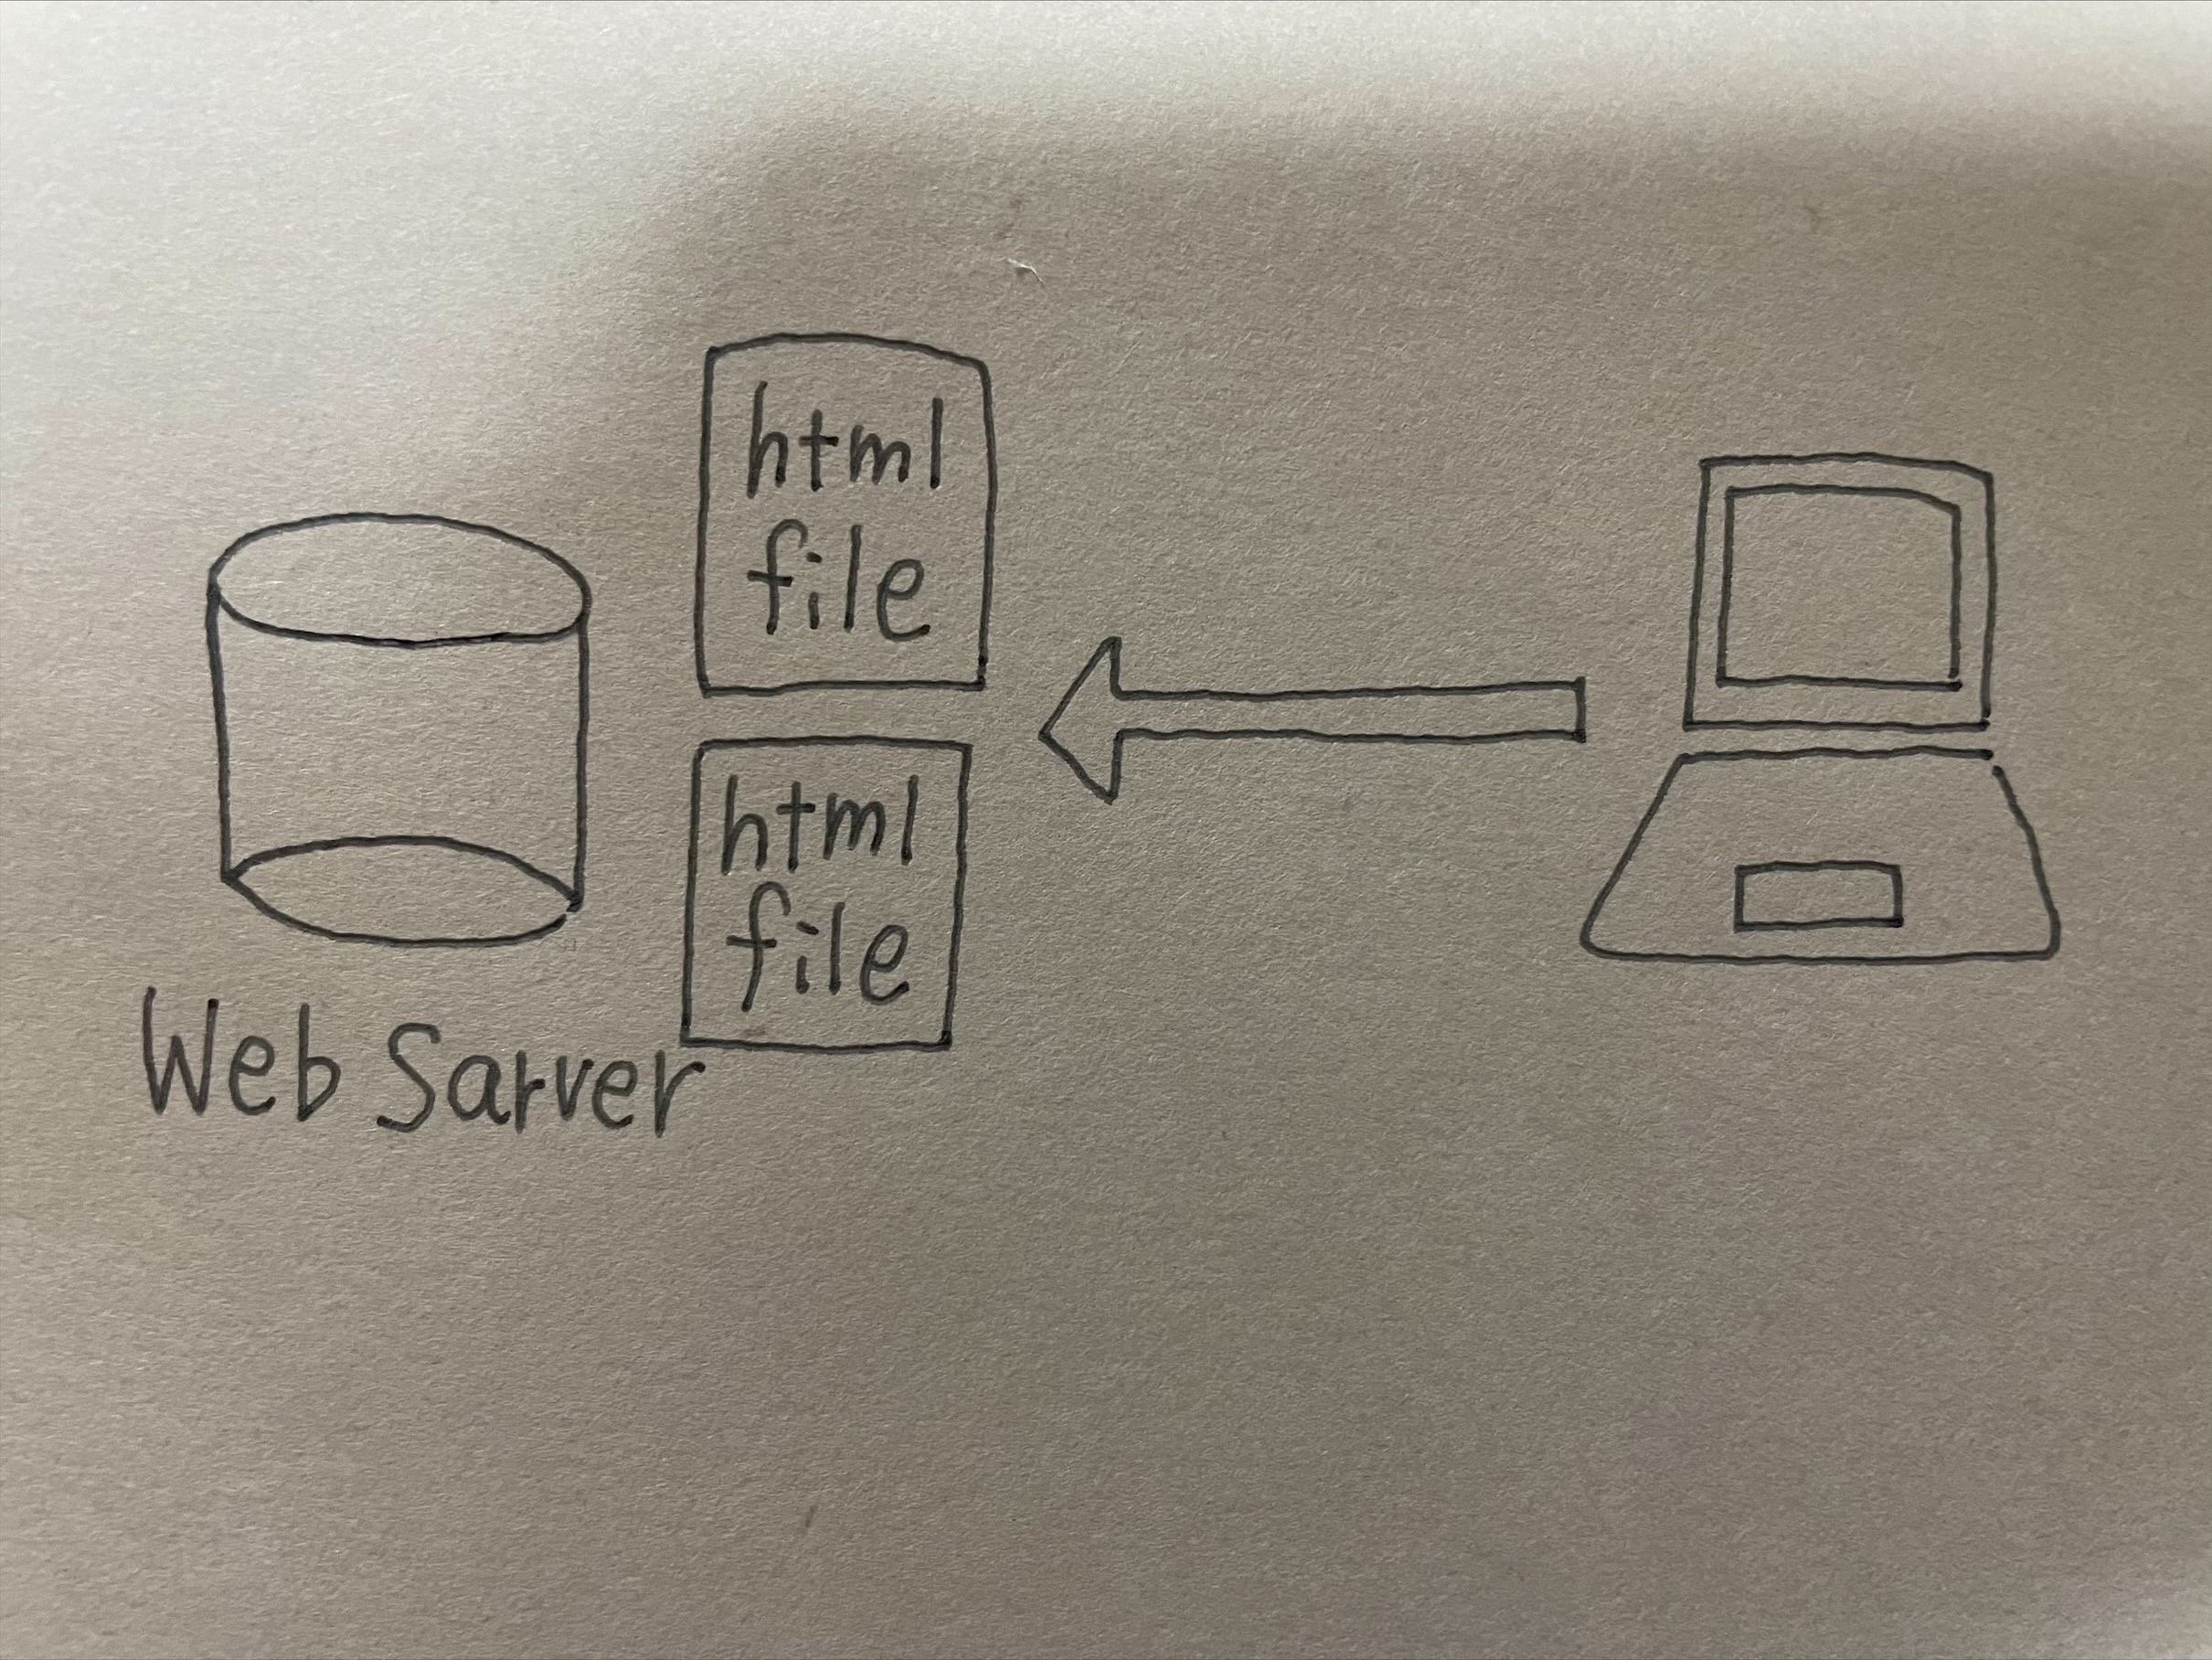 html
file
html
file
Web Sarver